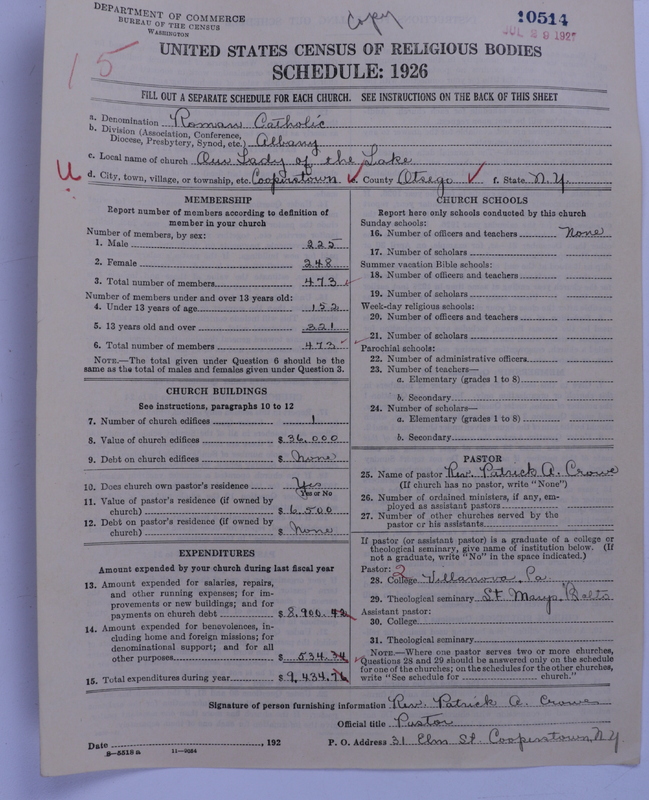 DEPARTMENT OF COMMERCE
BUREAU OF THE CENSUS
WASHINGTON
Copy
10514
JUL 29 1927
15
UNITED STATES CENSUS OF RELIGIOUS BODIES
SCHEDULE: 1926
FILL OUT A SEPARATE SCHEDULE FOR EACH CHURCH. SEE INSTRUCTIONS ON THE BACK OF THIS SHEET
a. Denomination Roman Catholic
b. Division (Association, Conference, Diocese, Presbytery, Synod, etc.) Albany
c. Local name of church Our Lady of the Lake
U
d. City, town, village, or township, etc. Cooperstown e. County Otsego f. State N.Y.
MEMBERSHIP
Report number of members according to definition of
member in your church
Number of members, by sex:
1. Male 225
2. Female 248
3. Total number of members 473
Number of members under and over 13 years old:
4. Under 13 years of age 152
5. 13 years old and over 321
6. Total number of members 473
NOTE.—The total given under Question 6 should be the
same as the total of males and females given under Question 3.
CHURCH BUILDINGS
See instructions, paragraphs 10 to 12
7. Number of church edifices 1
8. Value of church edifices $ 36,000
9. Debt on church edifices $ None
10. Does church own pastor's residence Yes
Yes or No
11. Value of pastor's residence (if owned by
church) $ 6,500
12. Debt on pastor's residence (if owned by
church) $ None
EXPENDITURES
Amount expended by your church during last fiscal year
13. Amount expended for salaries, repairs,
and other running expenses; for im-
provements or new buildings; and for
payments on church debt $ 8,900.42
14. Amount expended for benevolences, in-
cluding home and foreign missions; for
denominational support; and for all
other purposes $ 534.34
15. Total expenditures during year $ 9,434.76
CHURCH SCHOOLS
Report here only schools conducted by this church
Sunday schools:
16. Number of officers and teachers None
17. Number of scholars
Summer vacation Bible schools:
18. Number of officers and teachers
19. Number of scholars
Week-day religious schools:
20. Number of officers and teachers
21. Number of scholars
Parochial schools:
22. Number of administrative officers
23. Number of teachers—
a. Elementary (grades 1 to 8)
b. Secondary
24. Number of scholars—
a. Elementary (grades 1 to 8)
b. Secondary
PASTOR
25. Name of pastor Rev. Patrick A. Crowe
(If church has no pastor, write "None")
26. Number of ordained ministers, if any, em-
ployed as assistant pastors
27. Number of other churches served by the
pastor or his assistants
If pastor (or assistant pastor) is a graduate of a college or
theological seminary, give name of institution below. (If
not a graduate, write "No" in the space indicated.)
Pastor: 2
28. College Villanova Pa.
29. Theological seminary St Marys, Balto
Assistant pastor:
30. College
31. Theological seminary
NOTE.—Where one pastor serves two or more churches,
Questions 28 and 29 should be answered only on the schedule
for one of the churches; on the schedules for the other churches,
write "See schedule for church."
Signature of person furnishing information Rev. Patrick A. Crowe
Official title Pastor
Date , 192 P. O. Address 31 Elm St. Cooperstown, N.Y.
8-5518 a 11-9054